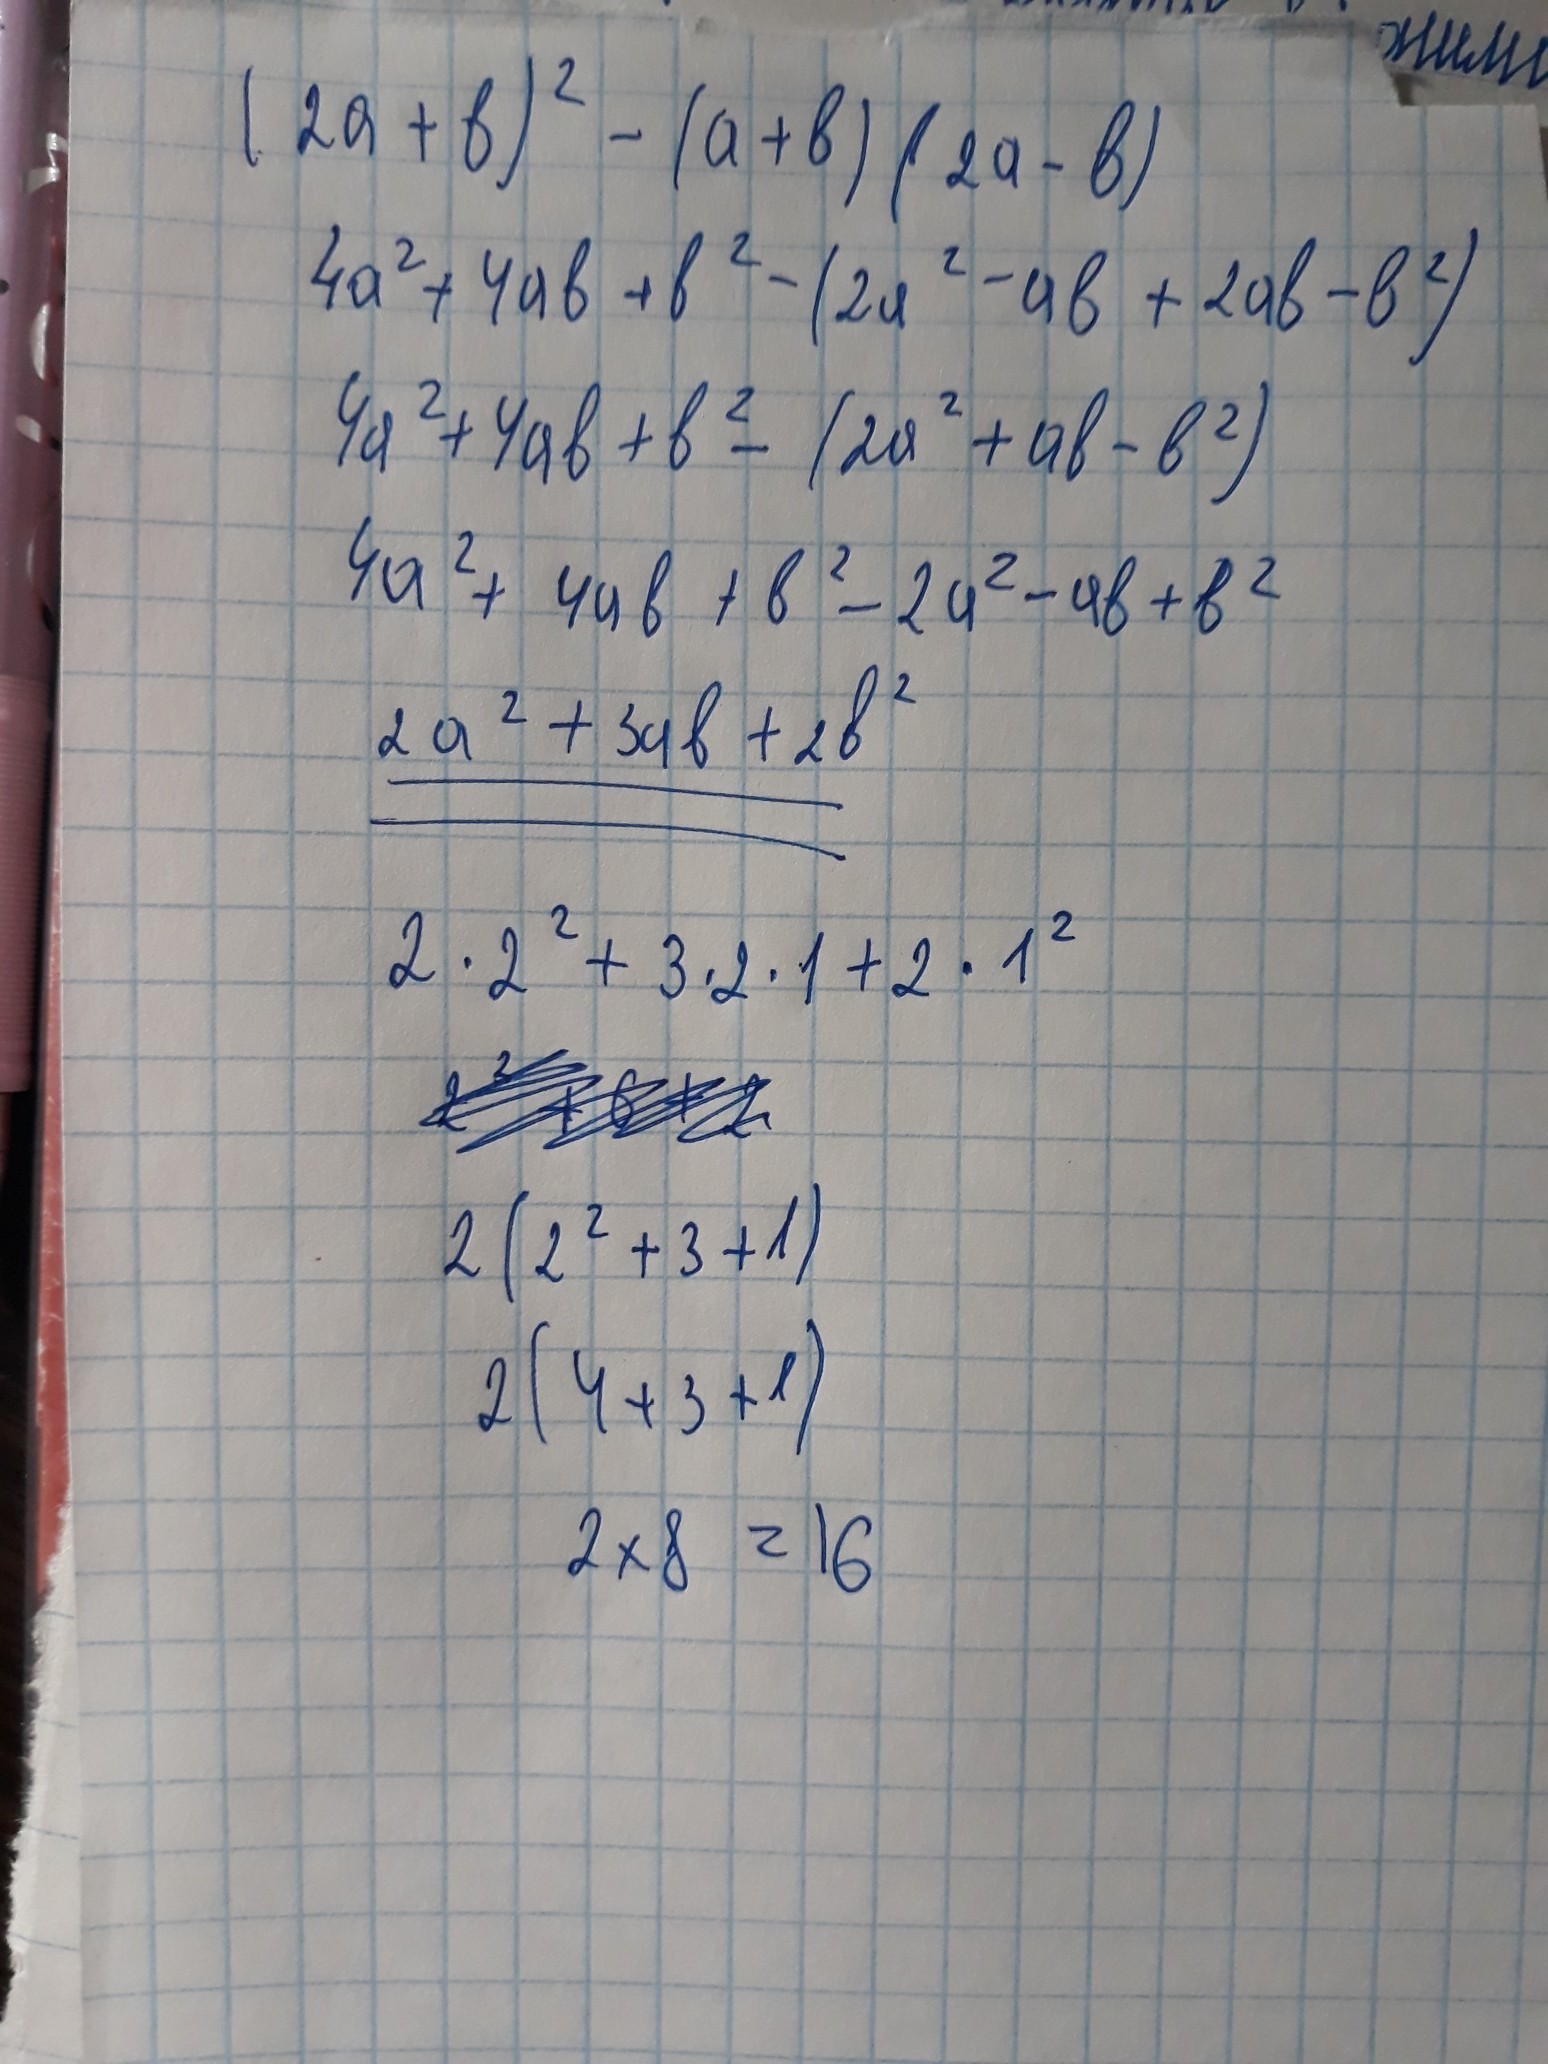 (2a + b)² - (a + b)(2a - b)
4a² + 4ab + b² - (2a² - ab + 2ab - b²)
4a² + 4ab + b² - (2a² + ab - b²)
4a² + 4ab + b² - 2a² - ab + b²
2a² + 3ab + 2b²
2 · 2² + 3 · 2 · 1 + 2 · 1²
2³ + 6 + 2
2(2² + 3 + 1)
2(4 + 3 + 1)
2 x 8 = 16